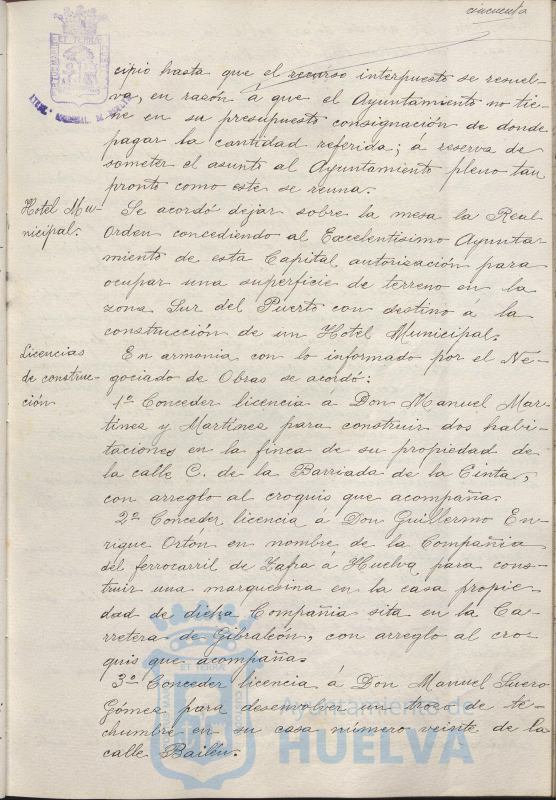 cincuenta
cipio hasta que el recurso interpuesto se resuel-
va, en razón á que el Ayuntamiento no tie-
ne en su presupuesto consignación de donde
pagar la cantidad referida; a reserva de
someter el asunto al Ayuntamiento pleno tan
pronto como este se reuna.
Hotel Mu-
nicipal.
Se acordó dejar sobre la mesa la Real
Orden concediendo al Excelentisimo Ayunta-
miento de esta Capital autorización para
ocupar una superficie de terreno en la
zona Sur del Puerto con destino á la
construcción de un Hotel Municipal.
Licencias
de construc-
ción
En armonia con lo informado por el Ne-
gociado de Obras se acordó:
1º Conceder licencia a Don Manuel Mar-
tinez y Martinez para construir dos habi-
taciones en la finca de su propiedad de
la calle C. de la Barriada de la Cinta,
con arreglo al croquis que acompaña.
2º Conceder licencia á Don Guillermo En-
rique Ortón en nombre de la Compañia
del ferrocarril de Zafra á Huelva para cons-
truir una marquesina en la casa propie-
dad de dicha Compañia sita en la Ca-
rretera de Gibraleón, con arreglo al cro-
quis que acompaña.
3º Conceder licencia á Don Manuel Suero
Gómez para desenvolver un trozo de te-
chumbre en su casa número veinte de la
calle Bailén.
Ayuntamiento de
HUELVA